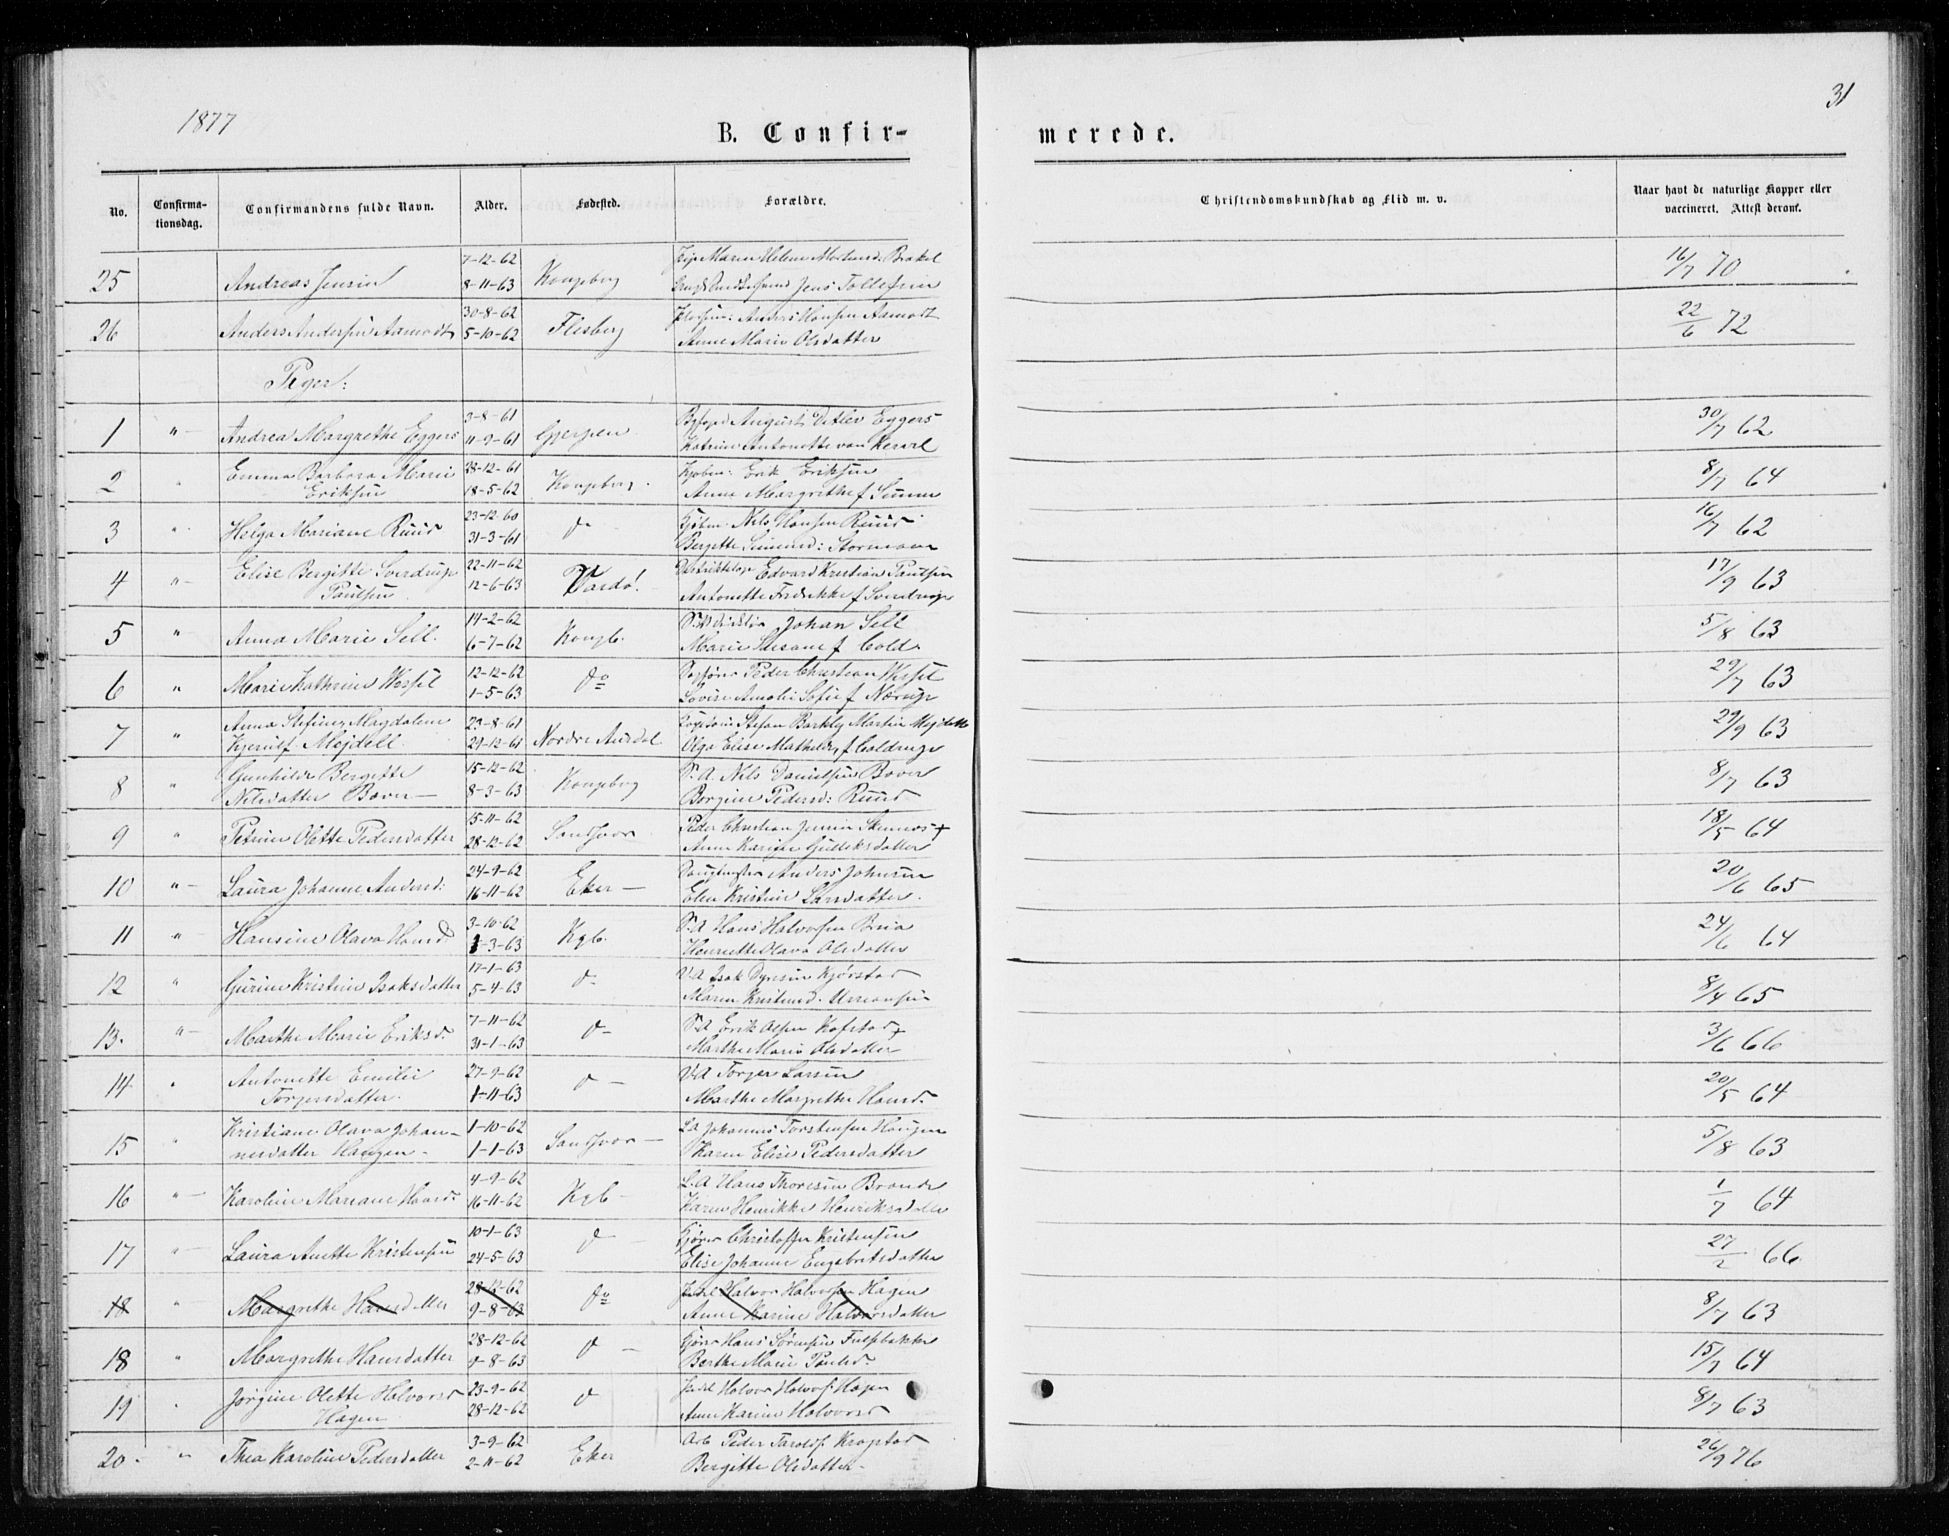 1877
31
B. Confir-
merede.
No.
Confirma-
tionsdag.
Confirmandens fulde Navn.
Alder.
Fødested.
Forældre.
Christendomskundskab og Flid m. v.
Naar havt de naturlige Kopper eller
vaccineret. Attest derom.
25 Andreas Jensen 7-12-62 8-11-63 Kongsberg
Jens Tollefsen 16/7 70
26 Anders Andersen Aamodt 30-8-62 5-10-62 Flesberg Anders Hansen Aamodt
Anne Marie Olsdatter 22/6 72
Piger:
1 " Andrea Margrethe Eggers 3-8-61 11-9-61 Gjerpen Byfoged August Detlev Eggers
Katrine Antonette von 30/7 62
2 " Emma Barbara Marie
Eriksen 28-12-61 18-5-62 Kongsberg. Erik Eriksen
Anna Margrethe f 8/7 64
3 " Helga Mariane Ruud 23-12-60 31-3-61 do Nils Hansen Ruud
Bergitte 16/7 62
4 " Elise Bergitte Sverdrup
Paulsen 22-11-62 12-6-63 Vardø! Distriktslæge Edvard Kristian Paulsen
Antonette Fredrikke f Sverdrup 17/9 63
5 " Anna Marie Sell. 14-2-62 6-7-62 Kongb. Johan Sell
Marie Susane f Cold. 5/8 63
6 " Marie Kathrine Wessel 12-12-62 1-5-63 do Sagfører Peder Christian Wessel
Lovise Amalie Sofie f Nærup 29/7 63
7 " Anna Stefine Magdalene
Kjerulf Mejdell 22-8-61 29-12-61 Nordre Aurdal Stefan Barkley Martin Mejdell
Olga Elise Mathilde f 29/9 63
8 " Gunhilde Bergette
Nilsdatter Bover — 15-12-62 8-3-63 Kongsberg S.A. Nils Danielsen Bover
Borgine Pedersd: Ruud 8/7 63
9 " Petrine Olette Pedersdatter 15-11-62 28-12-62 Sandsvær Peder Christian Jensen
Anne Karine Gulliksdatter 18/5 64
10 " Laura Johanne Andersd: 24-9-62 16-11-62 Eker — Anders Johnsen
Elen Kristine Larsdatter. 20/6 65
11 " Hansine Olava Hansd 3-10-62 1-3-63 Kgb. S.A Hans Halvorsen
Henriette Olava Olsdatter 24/6 64
12 " Gurine Kristine Isaksdatter 17-1-63 5-4-63 do Isak Kjørstad
Maren Kristensd. 8/4 65
13. " Marthe Marie Eriksd. 7-11-62 31-1-63 do S.A Erik Olsen
Marthe Marie Olsdatter 3/6 66
14 " Antonette Emilie
Torgersdatter. 27-9-62 1-11-63 do Torger Larsen
Marthe Margrethe Hansd. 20/5 64
15 " Kristiane Olava Johan-
nesdatter Haugen - 1-10-62 1-1-63 Sandsvær — Johannes Torstensen Haugen
Karen Elise Pedersdatter 5/8 63
16 " Karoline Mariane Hansd: 4-9-62 16-11-62 Kgb — Hans Thoresen
Karen Henrikke Henriksdatter 1/7 64
17 " Laura Anette Kristensen 10-1-63 24-5-63 do Christoffer Kristensen
Elise Johanne Engebretsdatter 27/2 66
18 " Margrethe Hansdatter 28-12-62 9-8-63 do Halvor Halvorsen Hagen
Anne Karine Halvorsdatter 8/7 63
18 " Margrethe Hansdatter 28-12-62 9-8-63 do — Hans Sørensen
Berthe Marie Paulsd. 15/7 64
19 " Jørgine Olette Halvorsd
Hagen 23-9-62 28-12-62 do Halvor Halvors. Hagen
Anne Karine Halvorsd 8/7 63
20. " Thea Karoline Pedersdatter 3-9-62 2-11-62 Eker Arb Peder
Bergitte Olsdatter. 26/9 76